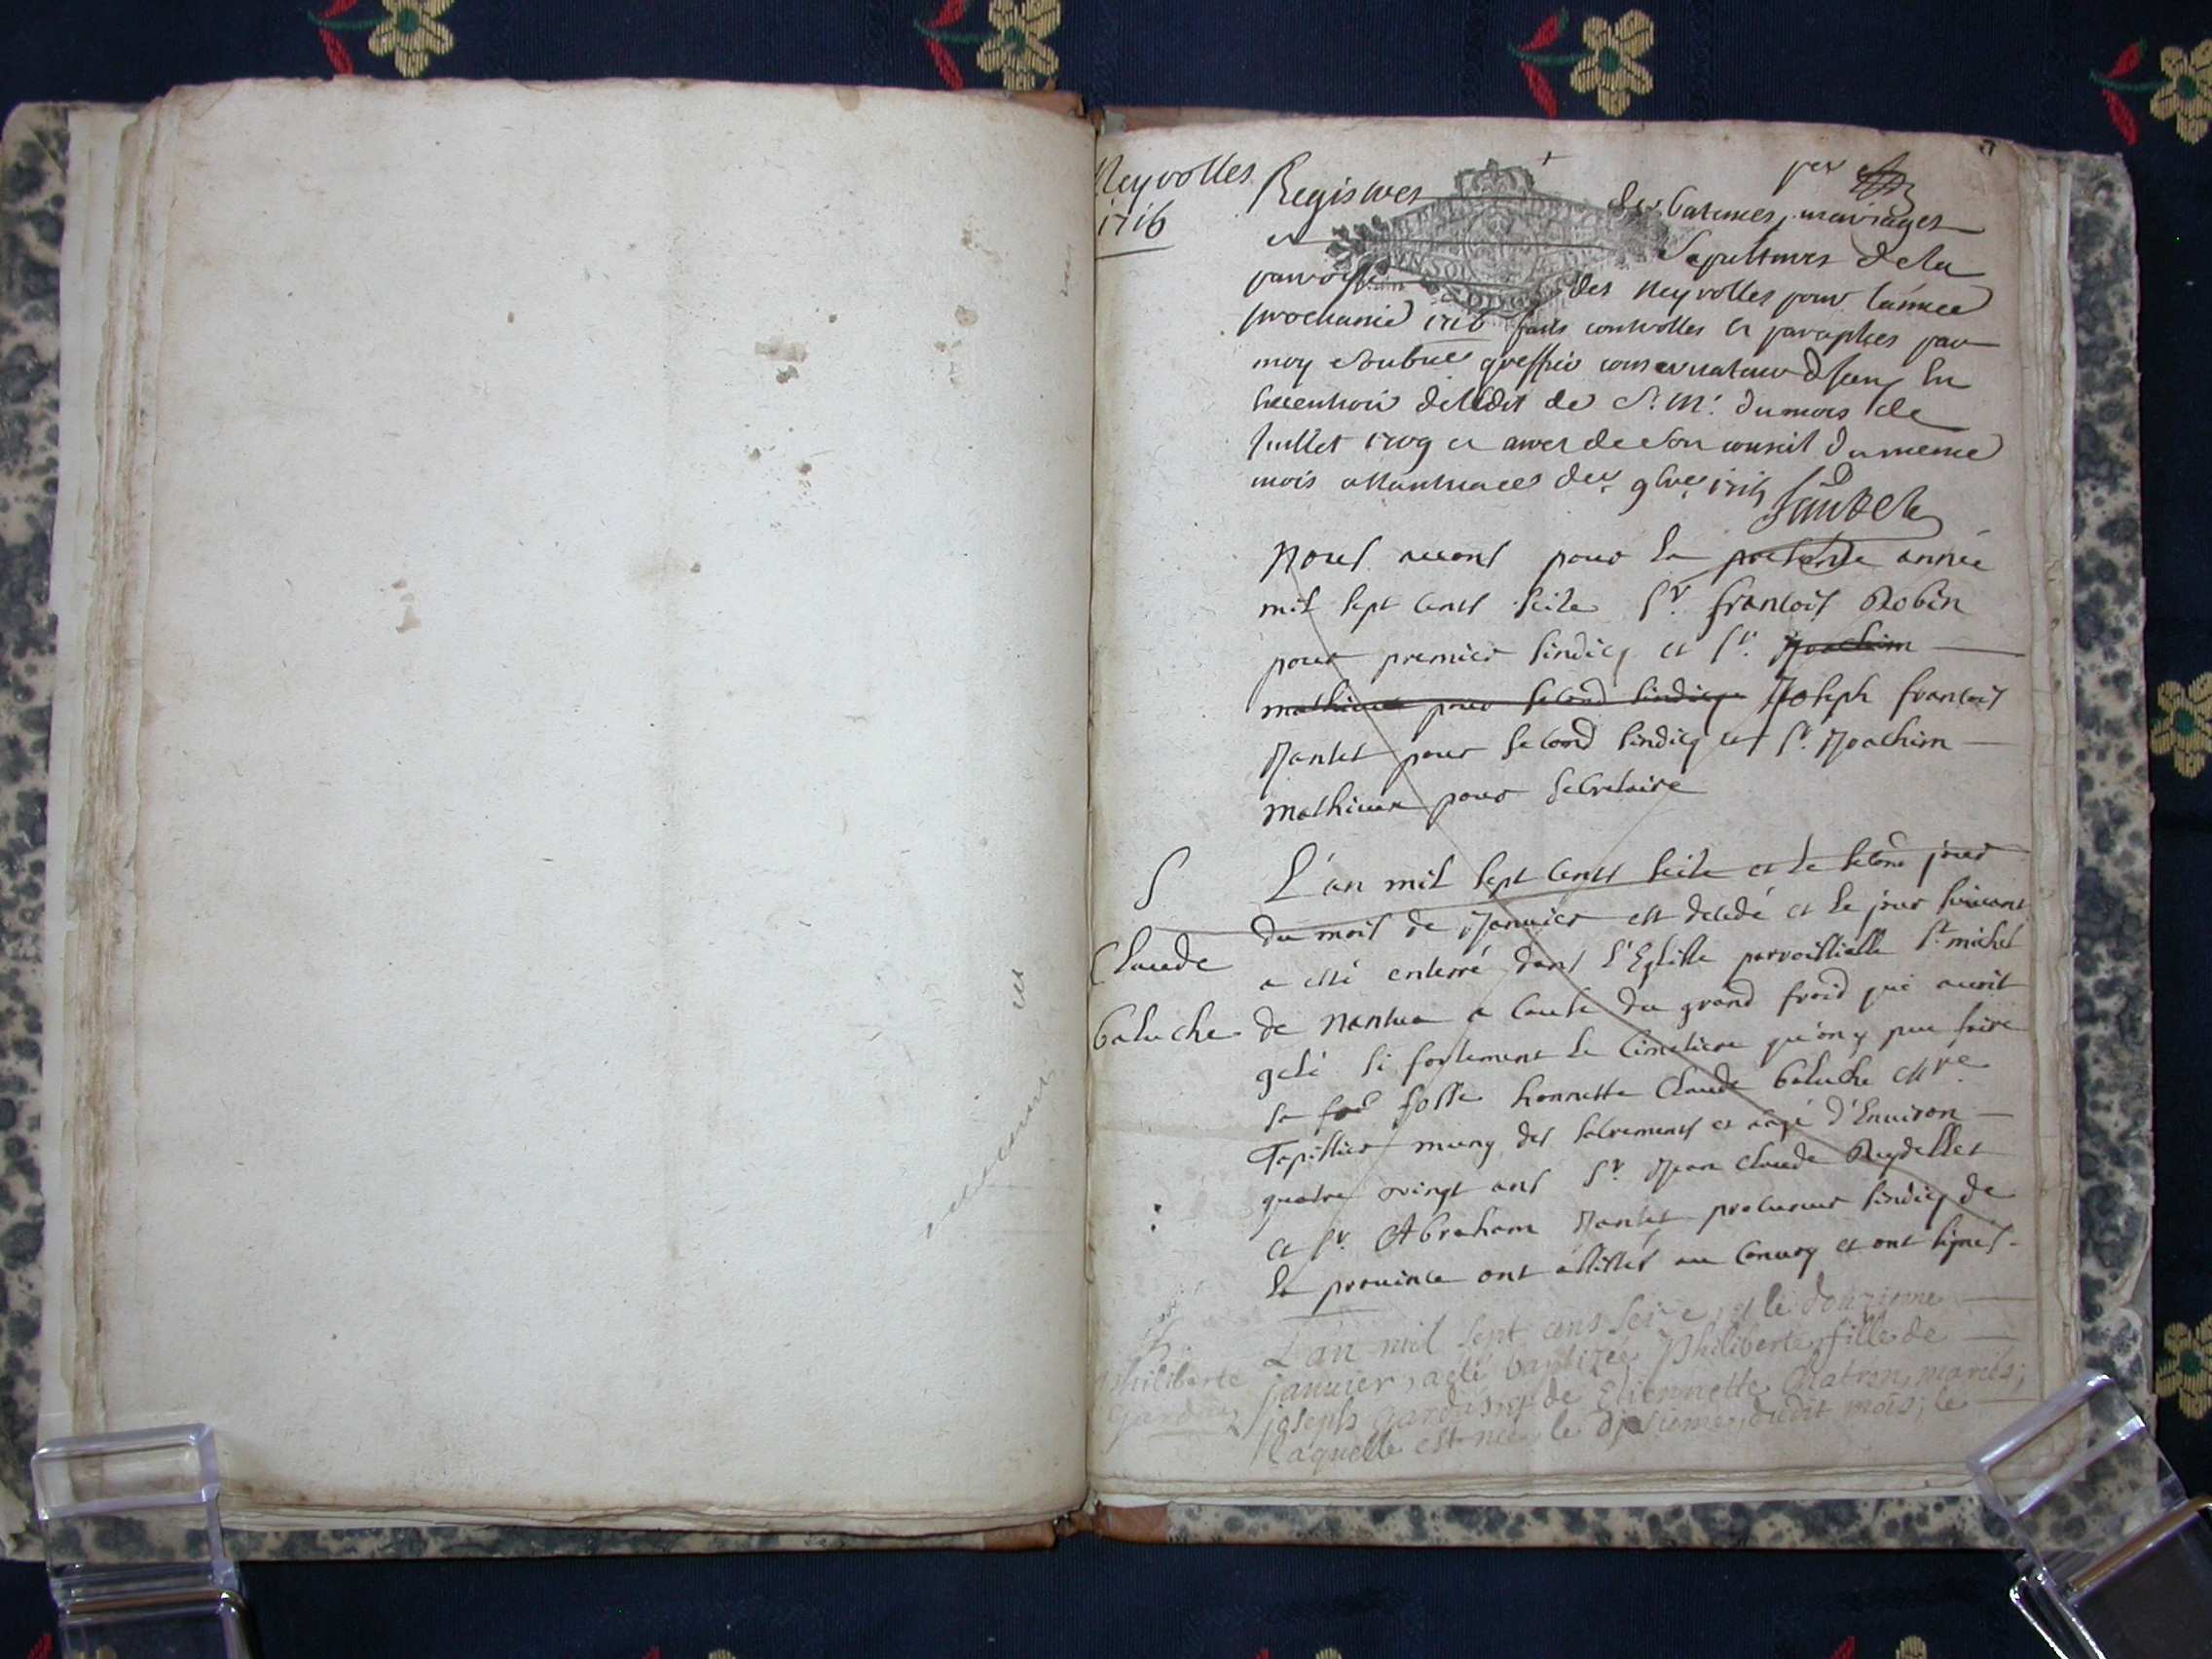 Neyrolles
1716
per
Registres des batemes, mariages
et Sepultures de la
parroisse des Neyrolles pour lannee
prochaine 1716 faits controlles et paraphes par
moy soubne greffier conservateur En
Execution de lédit de S. M. du mois de
Juillet 1709 et arrest de son conseil du meme
mois a Nantua ce 9bre
Nous avons pour la presente année
mil sept cents seize Sr. francois Robin
pour premier sindicq et Sr. Joachim
mathieux pour second sindicq Joseph francois
Jantet pour second sindicq et Sr. Joachim
mathieux pour secretaire
S
Claude
baluche
L'an mil sept cents seize et le second jour
du mois de Janvier est decedé et le jour suivant
a esté enterré dans l'Eglise parroissialle St. michel
de Nantua a cause du grand froid qui avoit
gelé si fortement le Cimetiere qu'on y peu faire
sa fos fosse honneste Claude baluche mre
Tapissier muny des sacrements et aagé d'Environ
quatre vingt ans Sr. Jean Claude Reydellet
et Sr. Abraham Jantet procureur sindicq de
la province ont assistés au Convoy et ont signés.
philiberte
L'an mil sept cens seize, et le douzieme
janvier, a eté baptizée Philiberte, fille de
joseph et de Etiennette Chatron, mariés;
laquelle est née le dudit mois; le